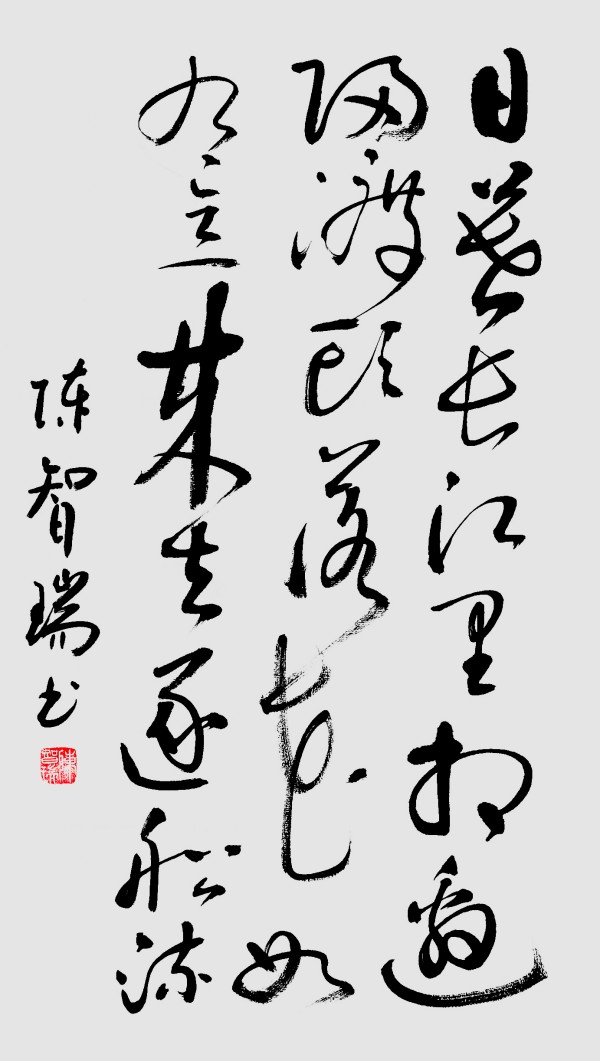 日暮长江里相邀
归渡头落花如
有意来去逐船流
陈智瑞书